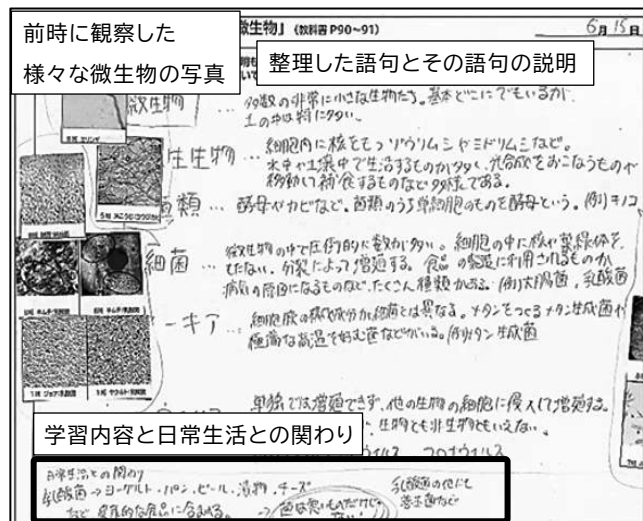 前時に観察した
様々な微生物の写真
微生物」（教科書 P90～91）
6月15日
整理した語句とその語句の説明
微生物 … 多数の非常に小さな生物たち。基本どこにでもいるが、
土の中は特に多い。
生生物 … 細胞内に核をもつゾウリムシやミドリムシなど。
水中や土壌中で生活するものが多い。光合成をおこなうものや
移動して補食するものなど多様である。
菌類 … 酵母やカビなど。菌類のうち単細胞のものを酵母という。(例)キノコ
細菌 … 微生物の中で圧倒的に数が多い。細胞の中に核や葉緑体を
もたない。分裂によって増殖する。食品の製造に利用されるものか
病気の原因になるものなど、たくさん種類がある。(例)大腸菌、乳酸菌
ーキア … 細胞膜の構成成分が細菌とは異なる。メタンをつくるメタン生成菌や
極端な高温を好む菌などがいる。(例)メタン生成菌
単独では増殖できず、他の生物の細胞に侵入して増殖する。
生物とも非生物ともいえない。
コロナウイルス
学習内容と日常生活との関わり
日常生活との関わり
乳酸菌→ヨーグルト・パン・ビール・漬物・チーズ
など
乳酸菌の他にも